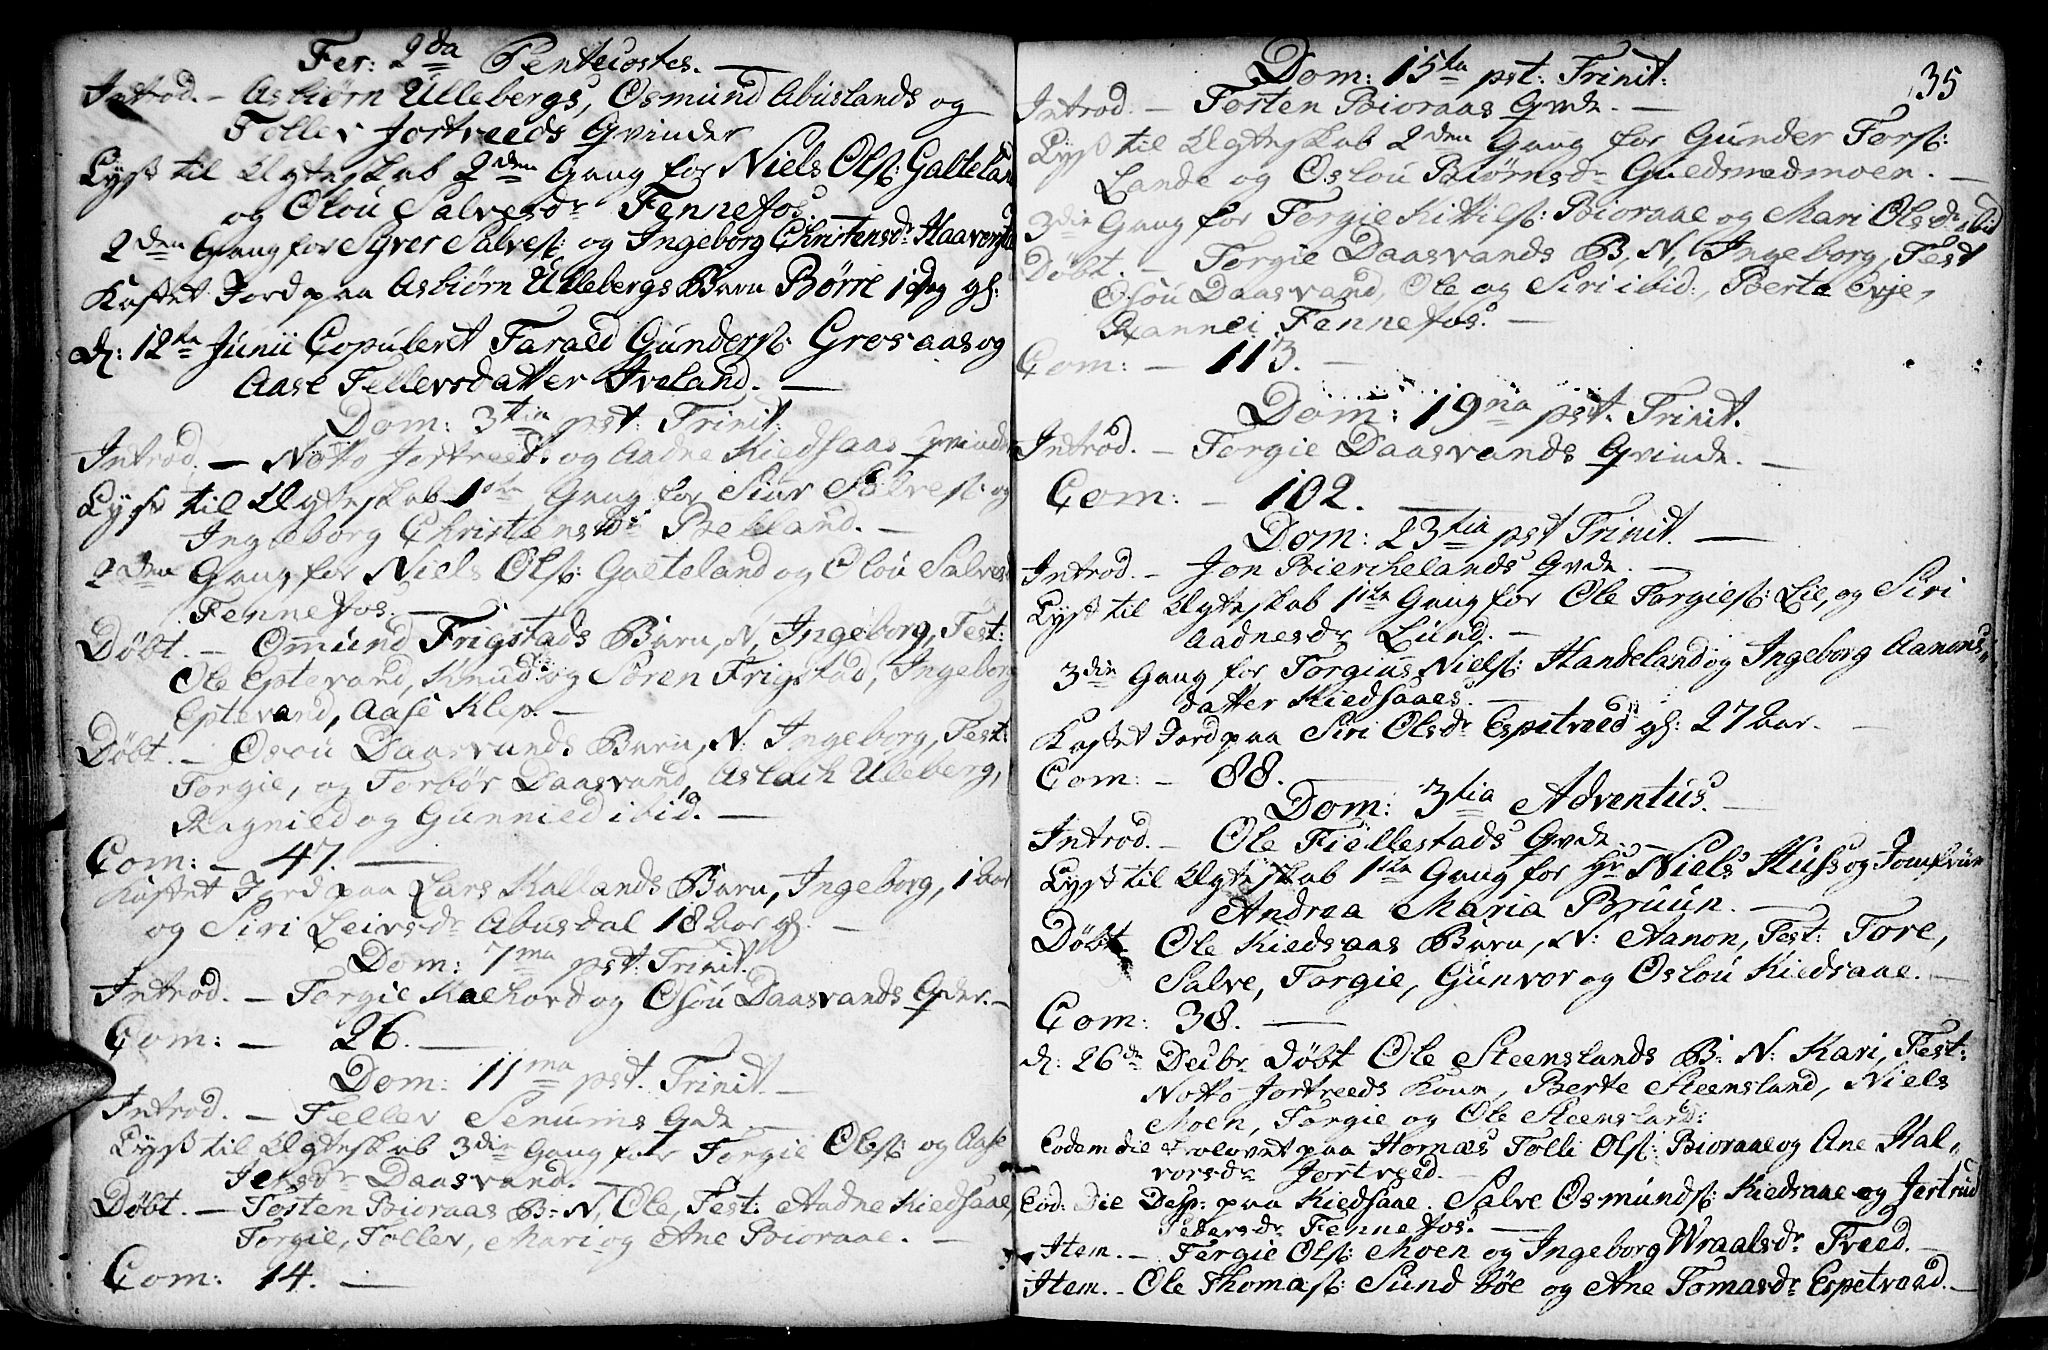 Fer: 2da Pentecostes. —
Introd. – Asbiørn Ullebergs, Osmund Abuslands og
Tollev Jortveeds Qvinder
Lyst til Ægteskab 2den Gang for Niels Ols: Galteland
og Olou Salvesdr Fennefos.
2den Gang for Syver Salves: og Ingeborg Christensdr
Kastet Jord paa Asbiørn Ullebergs Barn Børre 1 dag gl:
d: 12te Junii Copuleret Tarald Gunders: Grosaas og
Aase Tellevsdatter Iveland. —
Dom: 3tia pst: Trinit:
Introd. — Notto Jortveeds og Aadne Kiedsaas Qvinder
Lyst til Ægteskab 1ste Gang for Siur Salves: og
Ingeborg Christensdr —
2den Gang for Niels Ols: Galteland og Olou Salvesd
Fennefos. —
Døbt. – Omund Frigstads Barn, N. Ingeborg, Test:
Ole Eptevand, Knud og Søren Frigstad, Ingeborg
Eptevand, Aase Klep. —
Døbt. – Osou Daasvands Barn, N: Ingeborg, Test:
Torgie, og Torbør Daasvand, Aslach Uleberg,
Ragnild og Gunnild ibid. —
Com: – 47. —
Kastet Jord paa Lars Kallands Barn, Ingeborg, 1 Aar
og Siri Leivsdr Abusdal 18 Aar gl. —
Dom: 7ma pst: Trinit.
Introd. – Torgie Kaekord og Osou Daasvands Qder. –
Com: — 26. —
Dom: 11ma pst. Trinit. –
Introd. – Tellev Senums Qde. —
Lyst til Ægteskab 3die Gang for Torgie Ols: og Aase
Jensdr Daasvand. —
Døbt. – Tosten Bioraas B: N, Ole, Test: Aadne Kiedsaae,
Torgie, Tollev, Mari og Ane Bioraae. —
Com: 14. —
35
Dom: 15ta pst: Trinit:
Introd. – Tosten Bioraas Qvde. —
Lyst til Ægteskab 2den Gang for Gunder Tors:
Lande og Oslou Biørnsdr Guldsmedmoen. —
3die Gang for Torgie Kittils: Bioraae og Mari Olsdr ibid
Døbt. – Torgie Daasvands B. N, Ingeborg, Test
Osou Daasvand, Ole og Siri ibid:, Berte Evje,
Rannei Fennefos. —
Com: – 113. –
Dom: 19na pst. Trinit.
Introd. – Torgie Daasvands Qvinde. —
Com: – 102. —
Dom: 23tia pst Trinit. —
Introd. – Jon Bierchelands Qvde. —
Lyst til Ægteskab 1ste Gang for Ole Torgies: Lie, og Siri
Aadnesdr Lund. —
3die Gang for Torgius Niels: Handeland og Ingeborg Aanons
datter Kiedsaaes. —
Kastet Jord paa Siri Olsdr Espetveed gl: 27 Aar. —
Com: – 88.
Dom: 3tia Adventus. —
Introd. – Ole Fiellestads Qvde. –
Lyst til Ægteskab 1ste Gang for Hr Niels Huss og Jomfrue
Andrea Maria Bruun. —
Døbt Ole Kiedsaas Barn, N: Aanon, Test: Tore,
Salve, Torgie, Gunvor og Oslou Kiedsaae. —
Com: 38. —
d: 26de Decbr Døbt Ole Steenslands B: N: Kari, Test:
Notto Jortveeds Kone, Berte Steensland, Niels
Moen, Torgie og Ole Steensland:
Eodem die Trolovet paa Hornæs Tolli Ols: Bioraae og Ane Hal-
vorsdr Jortveed. —
Eod: Die Desp: paa Kiedsaae Salve Osmunds: Kiedsaae og Jertrud
Pedersdr Fennefos. —
Item. – Tergie Ols: Moen og Ingeborg Wraalsdr Tveed. —
Item. – Ole Thomas: Sundbøe og Ane Tomasdr Espetvead. —